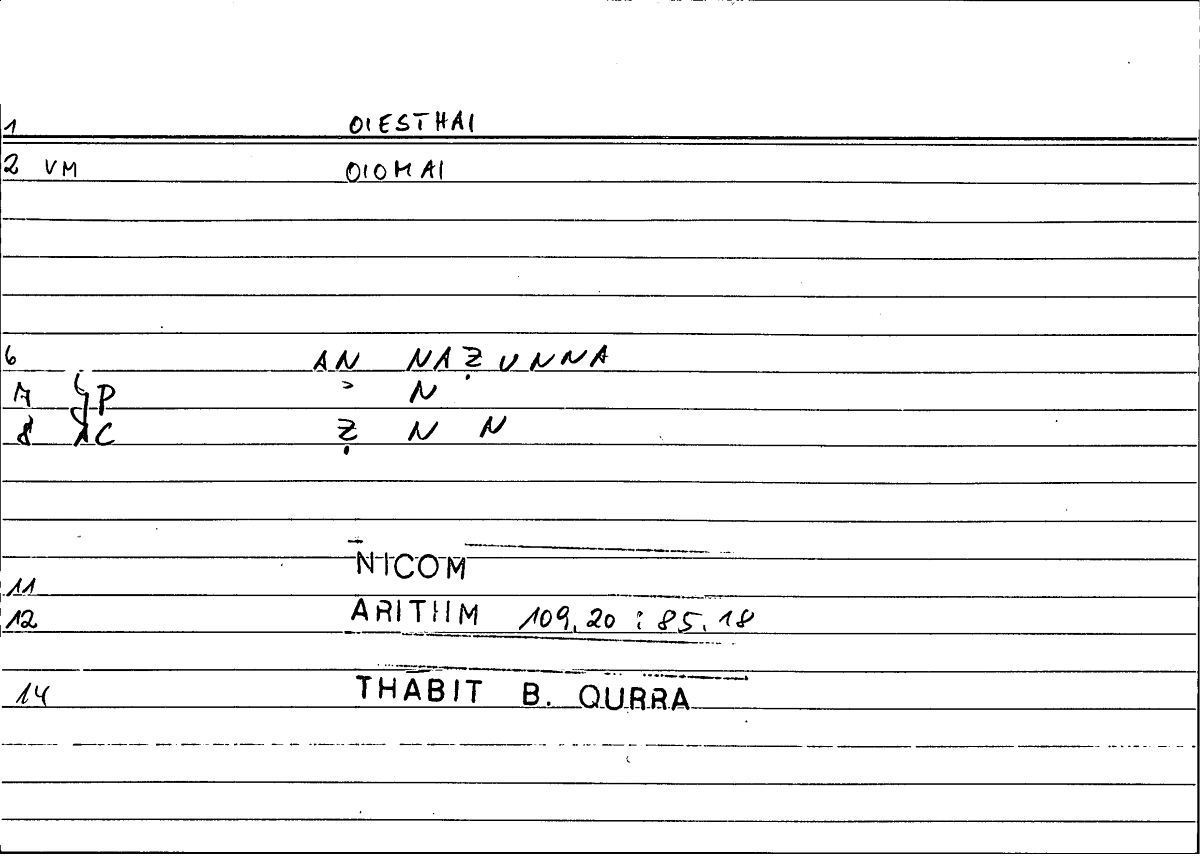 1 OIESTHAI
2 VM OIOMAI
6 AN NAẒUNNA
7 P ʾ N
8 C Ẓ N N
11 NICOM
12 ARITHM 109,20 : 85,18
14 THABIT B. QURRA